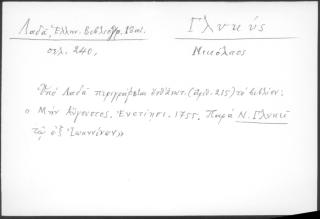 Λαδά, Ἑλλην. Βιβλιογρ. 18 αἰ.
σελ. 240.
Γλυκύς
Νικόλαος
Ὑπό Λαδᾶ περιγράφεται (ἀριθ. 215) τό βιβλίον:
« Μήν Αὔγουστος. Ἐνετίησι. 1755. Παρά Ν. Γλυκεῖ
τῷ ἐξ Ἰωαννίνων»